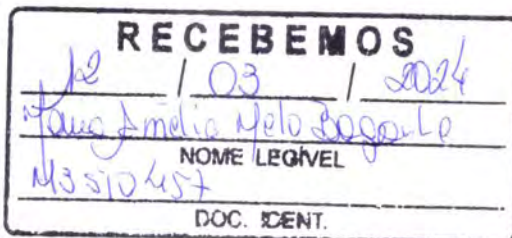 RECEBEMOS
12 / 03 / 2024
Amélia Melo
NOME LEGÍVEL
M3510457
DOC. IDENT.